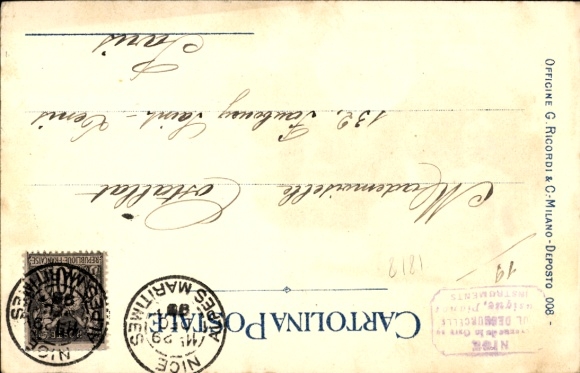 CARTOLINA POSTALE
Mademoiselle
Costallat
132, Faubourg Saint-Denis
Paris
OFFICINE G. RICORDI & C.-MILANO-DEPOSTO 008-
REPUBLIQUE FRANCAISE
NICE
ALPES MARITIMES
29
99
NICE
ALPES MARITIMES
NICE
INSTRUMENTS
1812
19